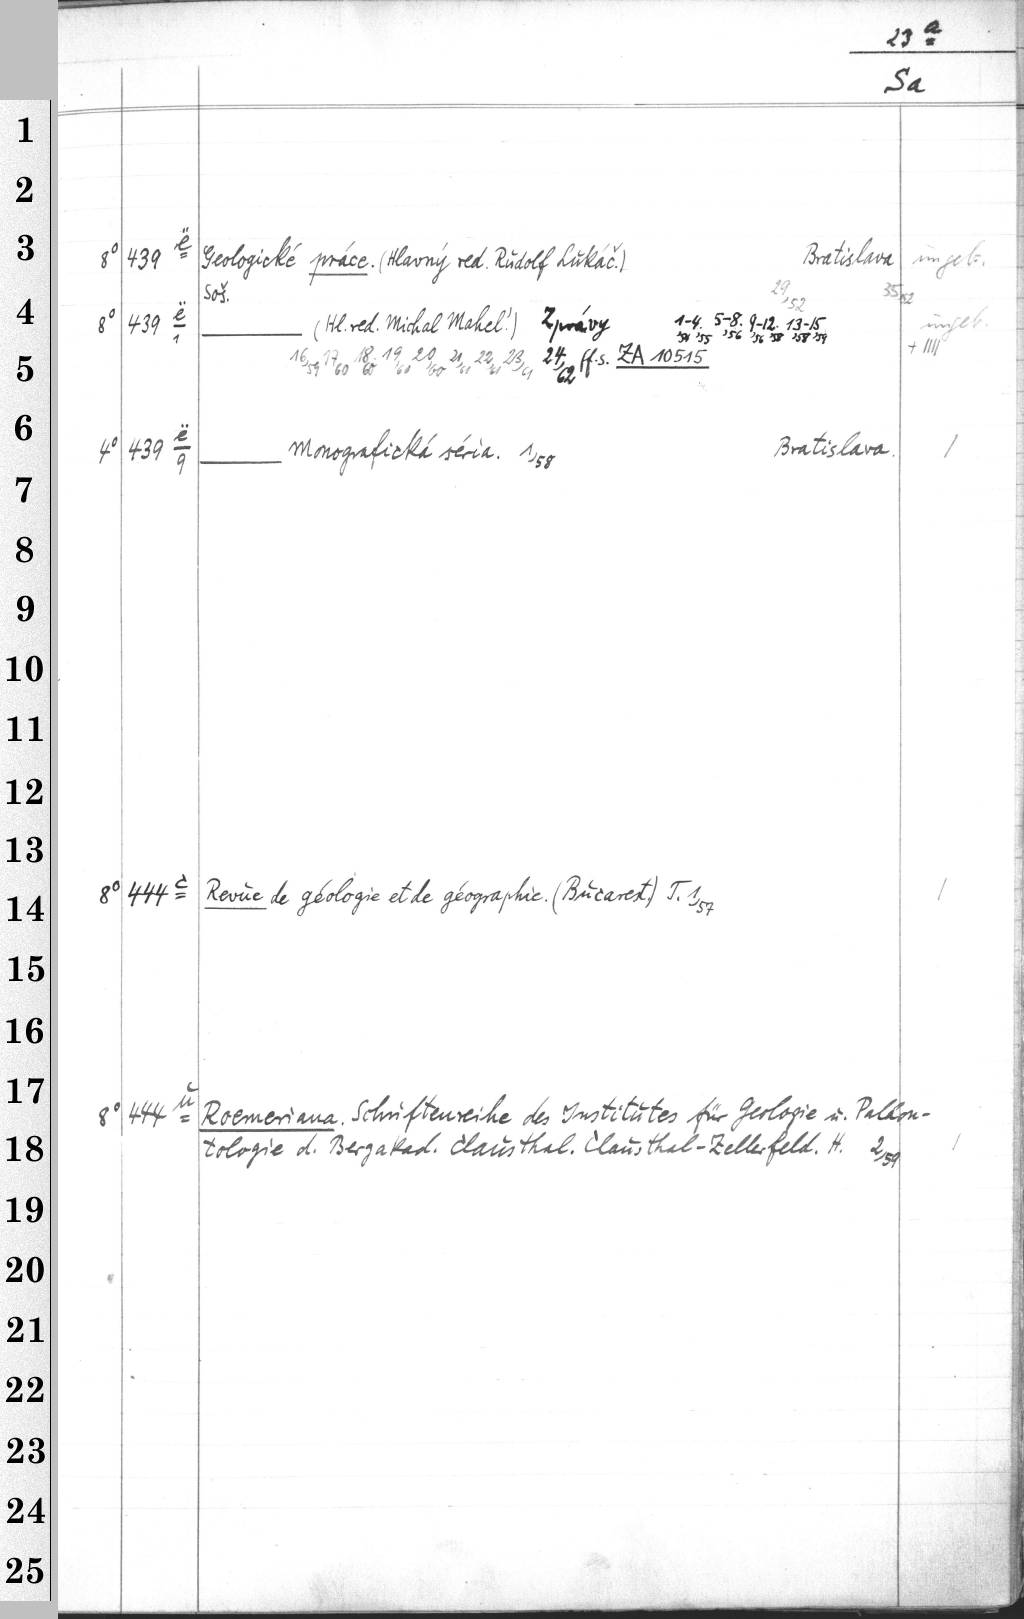 23 a
Sa
1
2
3
8° 439 ë Geologické práce. (Hlavný red. Rudolf Lukáč.) Bratislava ungeb.
Soš. 29,52 35,52
4
8° 439 ë/1 ——— (Hl. red. Michal Mahel'.) Zprávy 1-4,'54,'55 5-8,'56 9-12,'56,'58 13-15,'58,'59 ungeb. + IIII
5
16,59 17,60 18,60 19,60 20,60 21,61 22,61 23,61 24,62 ff. s. ZA 10515
6
4° 439 ë/9 ——— Monografická séria. 1,58 Bratislava. 1
7
8
9
10
11
12
13
8° 444 è Revue de géologie et de géographie. (Bucarest.) T. 1,57 1
14
15
16
17
8° 444 Roemeriana. Schriftenreihe des Institutes für Geologie u. Paläon-
18
tologie d. Bergakad. Clausthal. Clausthal-Zellerfeld. H. 2,59 1
19
20
21
22
23
24
25